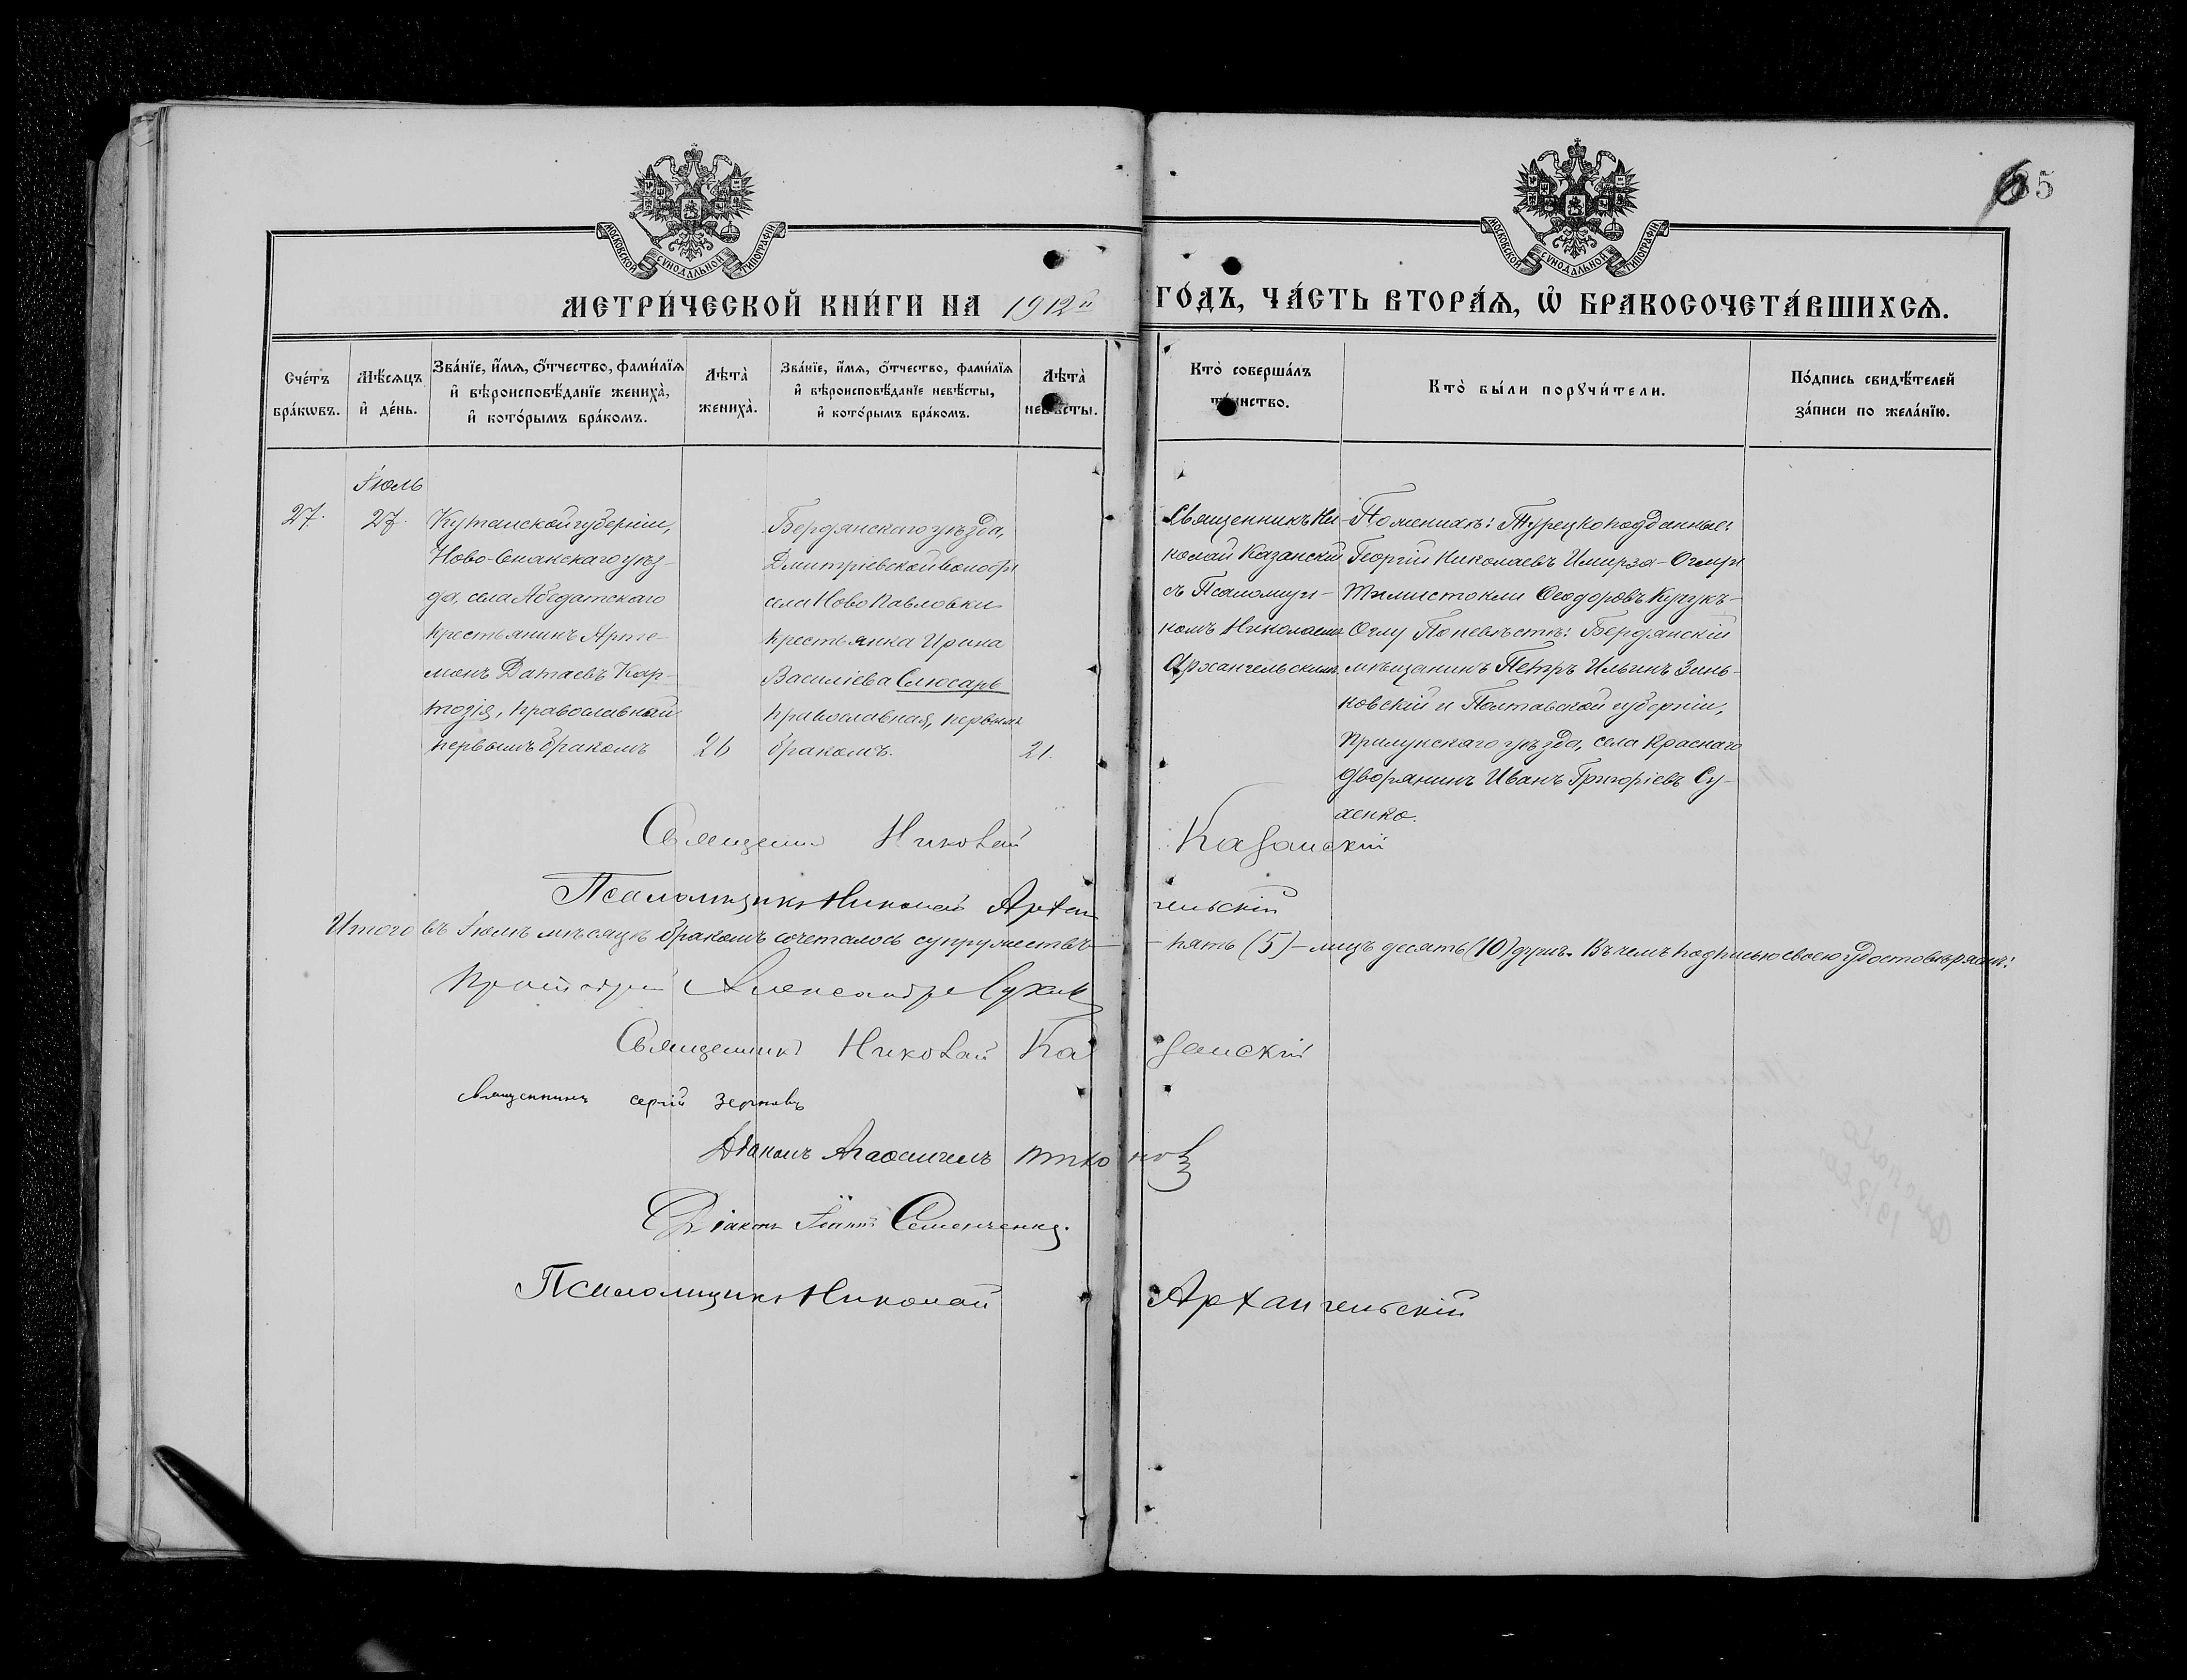 МОСКОВСКОЙ СѴНОДАЛЬНОЙ ТИПОГРАФІИ
МОСКОВСКОЙ СѴНОДАЛЬНОЙ ТИПОГРАФІИ
65
МЕТРИ́ЧЕСКОЙ КНИ́ГИ НА 1912й ГО́ДЪ, ЧА́СТЬ ВТОРА́Ѧ, Ѿ БРАКОСОЧЕТА́ВШИХСѦ.
Сче́тъ бра́кѡвъ.
Мѣ́сѧцъ и҆ де́нь.
Зва́нїе, и҆́мѧ, ѻ҆́тчество, фами́лїѧ
и҆ вѣроисповѣ́данїе жениха̀,
и҆ кото́рымъ бра́комъ.
Лѣта̀ жениха̀.
Зва́нїе, и҆́мѧ, ѻ҆́тчество, фами́лїѧ
и҆ вѣроисповѣ́данїе невѣ́сты,
и҆ кото́рымъ бра́комъ.
Лѣта̀ невѣ́сты.
Кто̀ соверша́лъ та́инство.
Кто̀ бы́ли порꙋчи́тели.
По́дпись свидѣ́телей
за́писи по жела́нїю.
Іюль
27.
27.
Кутаиской губерніи,
Ново-Сенакскаго уѣз-
да, села Абедатскаго
крестьянинъ Арте-
монъ Датаевъ Кар-
тозія, православный
первымъ бракомъ
26
Бердянскаго уѣзда,
Дмитріевской волости
села Ново Павловки
крестьянка Ирина
Василіева Слюсарь
православная, первымъ
бракомъ.
21.
Священникъ Ни-
колай Казанскій
съ Псаломщи-
комъ Николаемъ
Архангельскимъ.
По женихѣ: Турецкоподданные:
Георгій Николаевъ Имирза-Оглу и
Тимистокли Ѳеодоровъ Кучукъ-
Оглу По невѣстѣ: Бердянскій
мѣщанинъ Петръ Ильинъ Зинь-
ковскій и Полтавской губерніи,
Прилукскаго уѣзда, села Краснаго
дворянинъ Иванъ Григоріевъ Су-
хенко.
Священникъ Николай Казанскій
Псаломщикъ Николай Архангельскій
Итого въ Іюлѣ мѣсяцѣ бракомъ сочеталось супружествъ — пять (5) — лицъ десять (10) душъ. Въ чемъ подписью своею удостовѣряемъ:
Протоіерей Александръ
Священникъ Николай Казанскій
Священникъ Сергій Зерновъ
Діаконъ Аѳангелъ
Діаконъ Іоаннъ Семенченко.
Псаломщикъ Николай Архангельскій